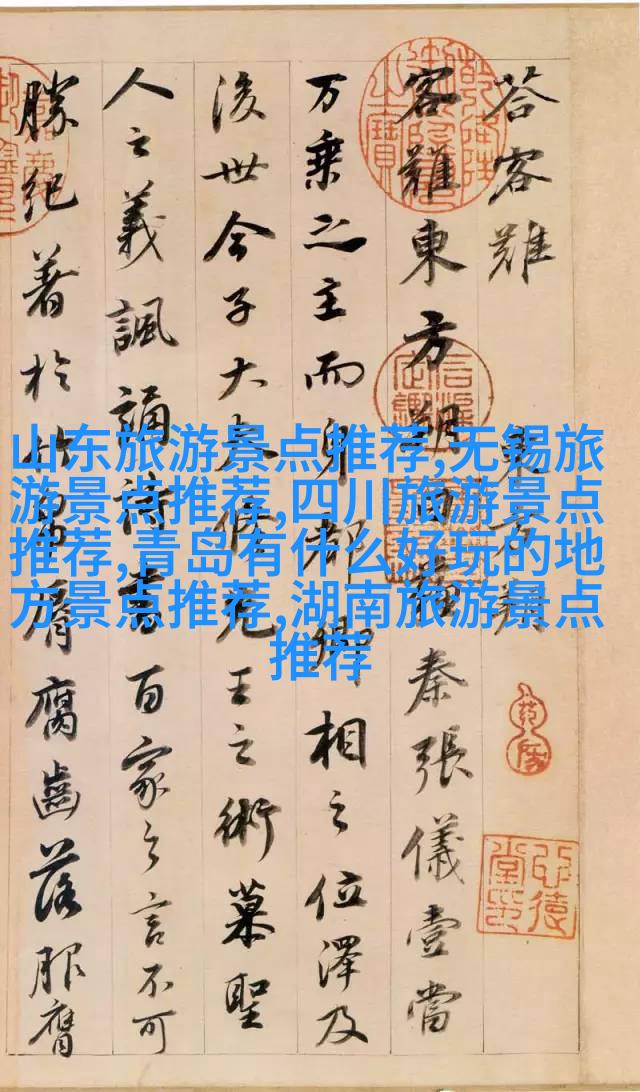 荅客難 東方朔
客難東方朔曰蘇秦張儀壹當
万乘之主而身都卿相之位澤及
後世今子大夫脩先王之術慕聖
人之義諷誦詩書百家之言不可
勝紀著於竹帛脣腐齒落服膺
山东旅游景点推荐,无锡旅
游景点推荐,四川旅游景点
推荐,青岛有什么好玩的地
方景点推荐,湖南旅游景点
推荐